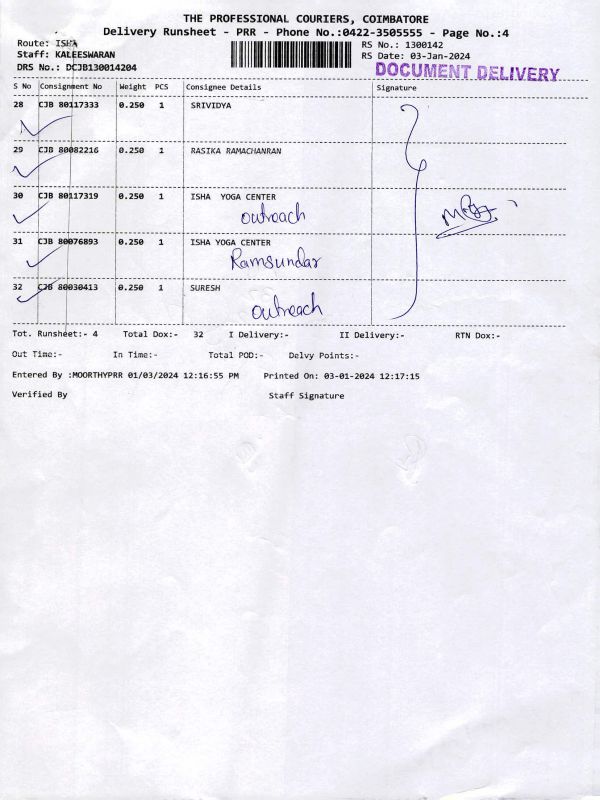 THE PROFESSIONAL COURIERS, COIMBATORE
Delivery Runsheet - PRR - Phone No.:0422-3505555 - Page No.:4
Route: ISHA
RS No.: 1300142
Staff: KALEESWARAN
RS Date: 03-Jan-2024
DRS No.: DCJB130014204
DOCUMENT DELIVERY
S No Consignment No Weight PCS Consignee Details Signature
28 CJB 80117333 0.250 1 SRIVIDYA
29 CJB 80082216 0.250 1 RASIKA RAMACHANRAN
30 CJB 80117319 0.250 1 ISHA YOGA CENTER
outreach
31 CJB 80076893 0.250 1 ISHA YOGA CENTER
Ramsundar
32 CJB 80030413 0.250 1 SURESH
outreach
Tot. Runsheet:- 4 Total Dox:- 32 I Delivery:- II Delivery:- RTN Dox:-
Out Time:- In Time:- Total POD:- Delvy Points:-
Entered By :MOORTHYPRR 01/03/2024 12:16:55 PM Printed On: 03-01-2024 12:17:15
Verified By Staff Signature